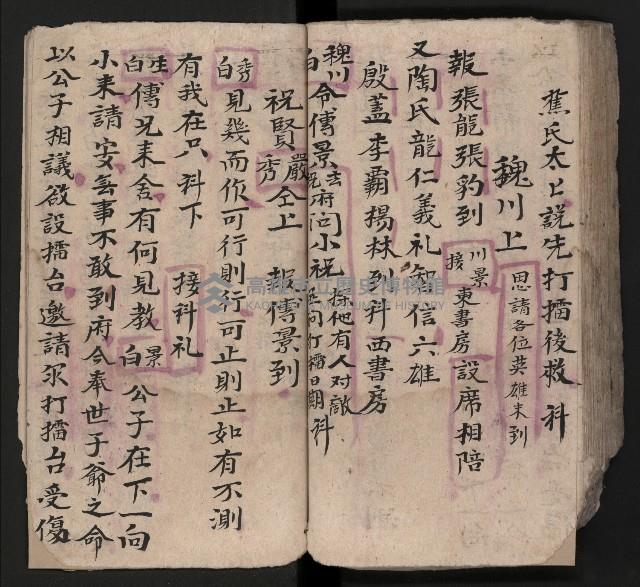 蕉氏太上説先打擂後救 科
魏川上 思請各位英雄未到
報張龍張豹到 川景接 東書房設席相陪
又陶氏龍仁義礼智信六雄
殷蓋李霸楊林到科西書房
魏川白令傅景去府问小祝 除他有人对敵 打擂日期科
祝賢嚴秀仝上 報傅景到
秀白見幾而作可行則行可止則止如有不測
有我在只科下 接科礼
生白傅兄来舍有何見教 景白公子在下一向
小来請安無事不敢到府今奉世子爺之命
以公子相議欲設擂台邀請來打擂台受傷
高雄市立歷史博物館
KAOHSIUNG MUSEUM OF HISTORY